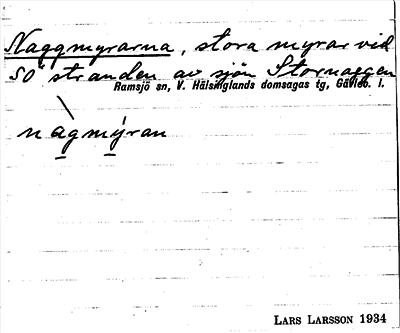 Naggmyrarna, stora myrar vid
SO stranden av sjön Stornaggen
Ramsjö sn, V. Hälsinglands domsagas tg, Gävleb. l.
nàgmýran
LARS LARSSON 1934